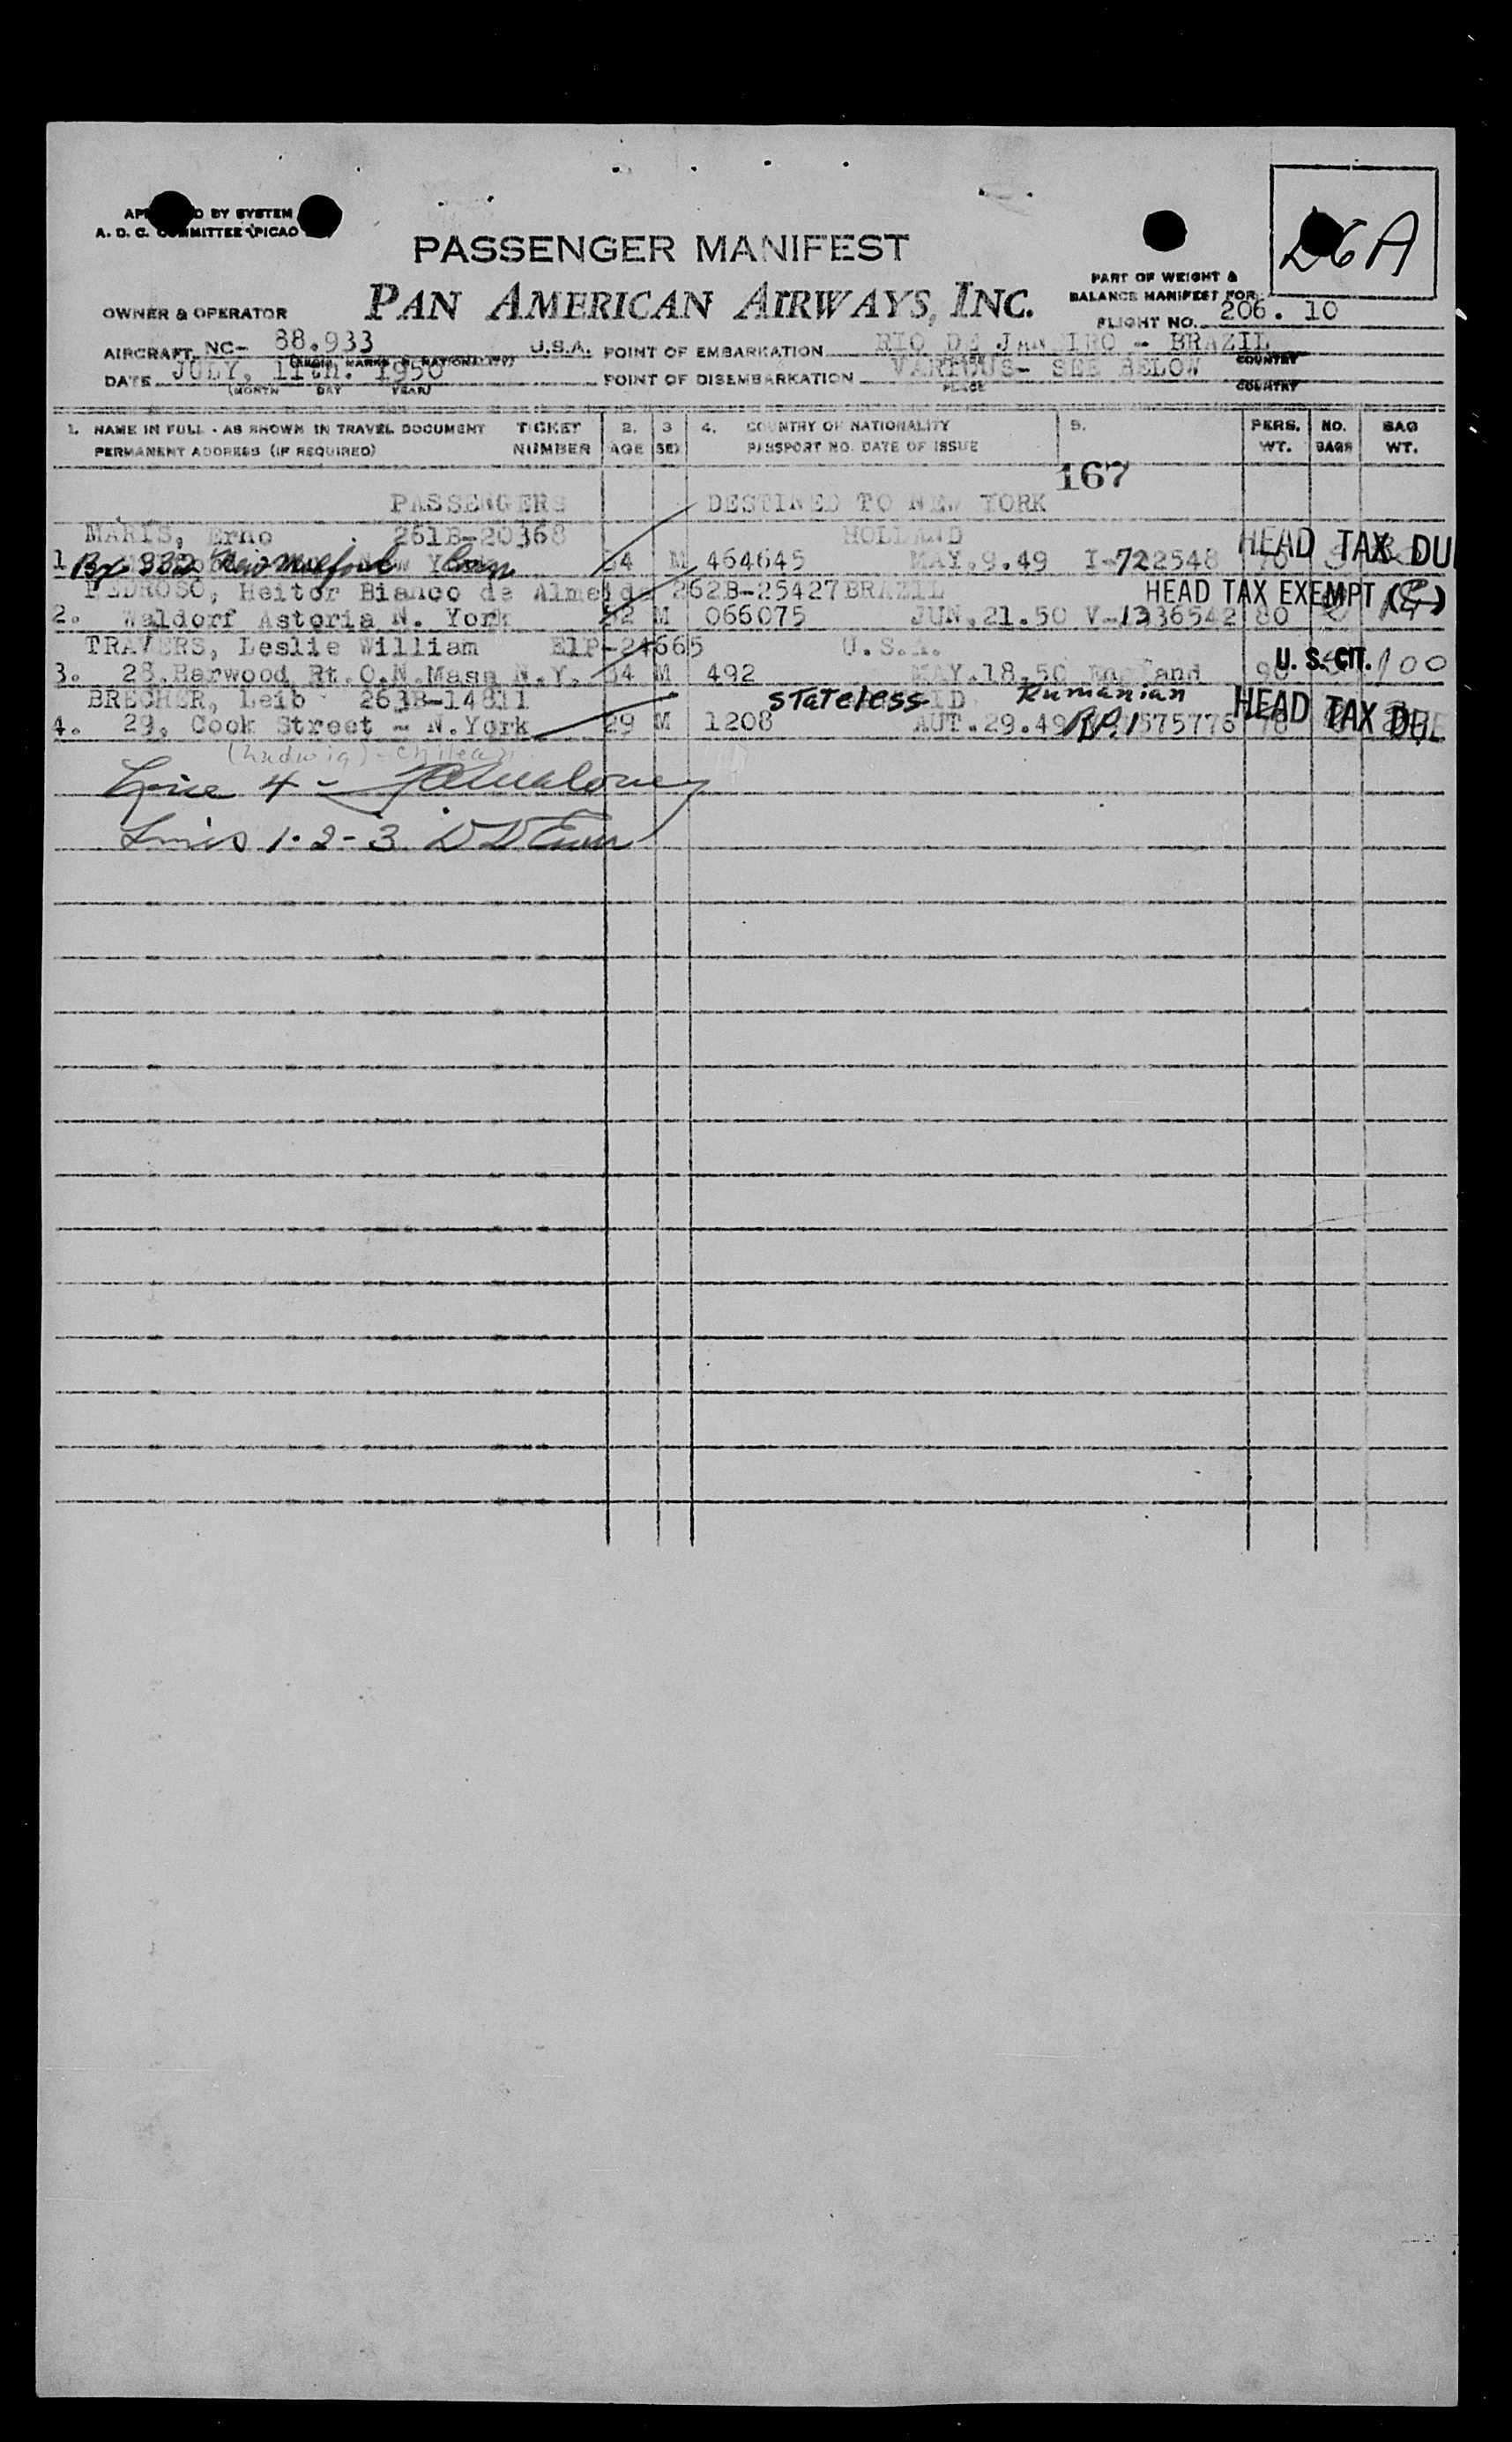 D6A
BY SYSTEM
A. D. C. COMMITTEE (PICAO
PASSENGER MANIFEST
PART OF WEIGHT &
BALANCE MANIFEST FOR
OWNER & OPERATOR
PAN AMERICAN AIRWAYS, INC.
FLIGHT NO. 206. 10
AIRCRAFT NC- 88.933 U.S.A. POINT OF EMBARKATION RIO DE JANEIRO - BRAZIL
COUNTRY
DATE JULY, 11th. 1950 POINT OF DISEMBARKATION VARIOUS- SEE BELOW
(MONTH DAY YEAR) PLACE COUNTRY
1. NAME IN FULL - AS SHOWN IN TRAVEL DOCUMENT TICKET 2. 3 4. COUNTRY OF NATIONALITY 5. PERS. NO. BAG
PERMANENT ADDRESS (IF REQUIRED) NUMBER AGE SEX PASSPORT NO. DATE OF ISSUE WT. BAGS WT.
167
PASSENGERS DESTINED TO NEW YORK
MARIS, Erno 261B-20368 HOLLAND
1. Bx 332 New Milford Conn 54 M 464645 MAY.9.49 I-722548 70 HEAD TAX DU
PEDROSO, Heitor Bianco de Almeida 262B-25427 BRAZIL HEAD TAX EXEMPT
2. Waldorf Astoria N. York 52 M 066075 JUN.21.50 V-1336542 80
TRAVERS, Leslie William E1P-24665 U.S.A.
3. 28.Harwood Rt.O.N.Mass N.Y. 54 M 492 MAY.18.50 England 90 U. S. CIT. 100
BRECHER, Leib 263B-14811 stateless Rumanian
4. 29, Cook Street - N.York 29 M 1208 AUT.29.49 R.P.1575776 70 HEAD TAX DUE
(Ludwig) - Chilean
Line 4 - Maloney
Lines 1-2-3